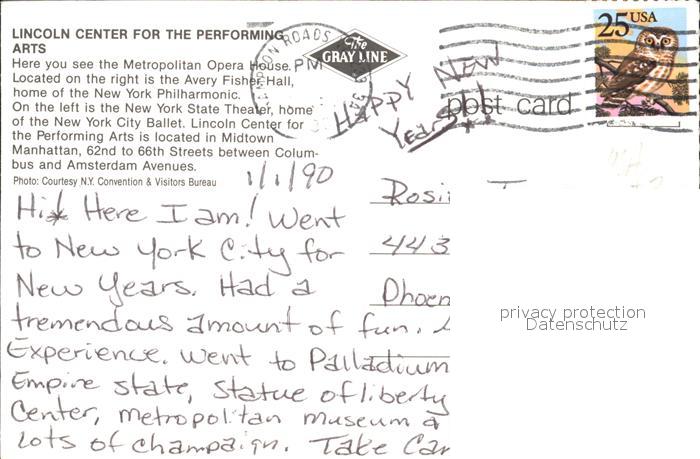 LINCOLN CENTER FOR THE PERFORMING
ARTS
Here you see the Metropolitan Opera House.
Located on the right is the Avery Fisher Hall,
home of the New York Philharmonic.
On the left is the New York State Theater, home
of the New York City Ballet. Lincoln Center for
the Performing Arts is located in Midtown
Manhattan, 62nd to 66th Streets between Colum-
bus and Amsterdam Avenues.
Photo: Courtesy N.Y. Convention & Visitors Bureau
The
GRAY LINE
ROADS
PM
25 USA
post card
HAPPY New
Years!
1/1/90
Hi! Here I am! Went
to New York City for
New Years. Had a
tremendous amount of fun.
Experience. Went to Palladium
Empire state, statue of liberty
Center, metropolitan museum
lots of champaign. Take Car
Rosi
443
Phoen
privacy protection
Datenschutz